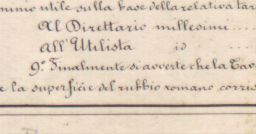 minio utile sulla base della relativa tar
Al Direttario millesimi ....
All'Utilista id ....
9.° Finalmente si avverte che la Tav
e la superficie del rubbio romano corris